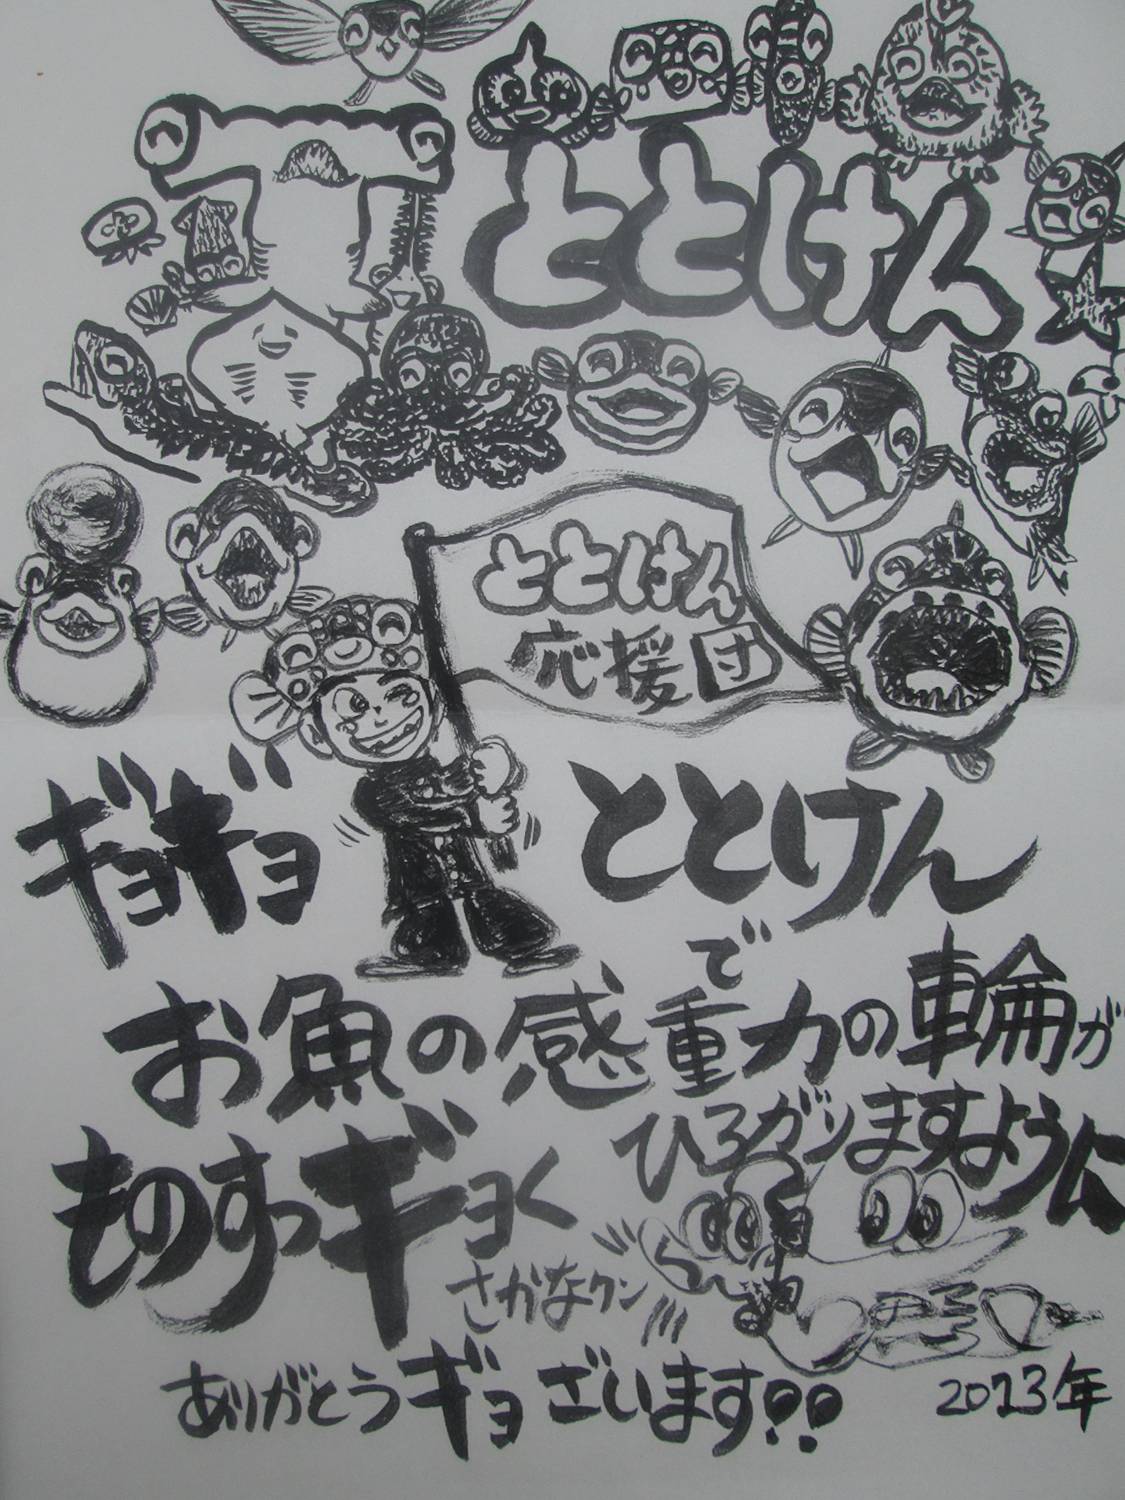 ととけん
ととけん
応援団
ギョギョ
ととけん
で
お魚の感重力の輪が
ひろがりますように
ものすっギョく
さかなクン
ありがとうギョざいます!!
2013年